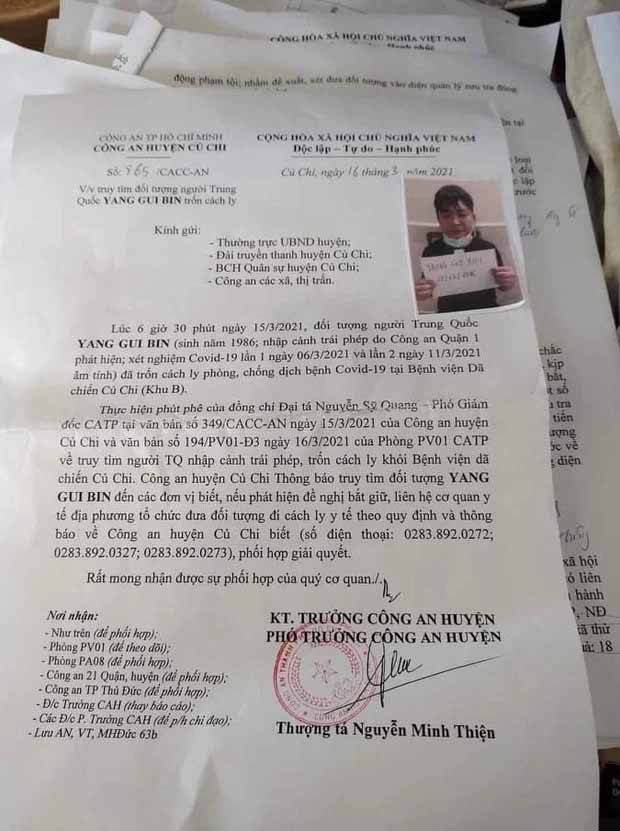 CỘNG HÒA XÃ HỘI CHỦ NGHĨA VIỆT NAM
Hạnh phúc
động phạm tội; nhằm đề xuất, xét đưa đối tượng vào diện quản lý sưu tra đúng
CÔNG AN TP HỒ CHÍ MINH
CÔNG AN HUYỆN CỦ CHI
CỘNG HÒA XÃ HỘI CHỦ NGHĨA VIỆT NAM
Độc lập – Tự do – Hạnh phúc
Số: 865 /CACC-AN
Củ Chi, ngày 16 tháng 3 năm 2021
V/v truy tìm đối tượng người Trung
Quốc YANG GUI BIN trốn cách ly
YANG GUI BIN
Kính gửi:
- Thường trực UBND huyện;
- Đài truyền thanh huyện Củ Chi;
- BCH Quân sự huyện Củ Chi;
- Công an các xã, thị trấn.
Lúc 6 giờ 30 phút ngày 15/3/2021, đối tượng người Trung Quốc
YANG GUI BIN (sinh năm 1986; nhập cảnh trái phép do Công an Quận 1
phát hiện; xét nghiệm Covid-19 lần 1 ngày 06/3/2021 và lần 2 ngày 11/3/2021
âm tính) đã trốn cách ly phòng, chống dịch bệnh Covid-19 tại Bệnh viện Dã
chiến Củ Chi (Khu B).
Thực hiện phút phê của đồng chí Đại tá Nguyễn Sỹ Quang - Phó Giám
đốc CATP tại văn bản số 349/CACC-AN ngày 15/3/2021 của Công an huyện
Củ Chi và văn bản số 194/PV01-Đ3 ngày 16/3/2021 của Phòng PV01 CATP
về truy tìm người TQ nhập cảnh trái phép, trốn cách ly khỏi Bệnh viện dã
chiến Củ Chi. Công an huyện Củ Chi Thông báo truy tìm đối tượng YANG
GUI BIN đến các đơn vị biết, nếu phát hiện đề nghị bắt giữ, liên hệ cơ quan y
tế địa phương tổ chức đưa đối tượng đi cách ly y tế theo quy định và thông
báo về Công an huyện Củ Chi biết (số điện thoại: 0283.892.0272;
0283.892.0327; 0283.892.0273), phối hợp giải quyết.
Rất mong nhận được sự phối hợp của quý cơ quan./.
Nơi nhận:
- Như trên (để phối hợp);
- Phòng PV01 (để theo dõi);
- Phòng PA08 (để phối hợp);
- Công an 21 Quận, huyện (để phối hợp);
- Công an TP Thủ Đức (để phối hợp);
- Đ/c Trưởng CAH (thay báo cáo);
- Các Đ/c P. Trưởng CAH (để p/h chỉ đạo);
- Lưu AN, VT, MHĐức 63b
KT. TRƯỞNG CÔNG AN HUYỆN
PHÓ TRƯỞNG CÔNG AN HUYỆN
Thượng tá Nguyễn Minh Thiện
xã hội
ó liên
hành
NĐ
xã thử
18